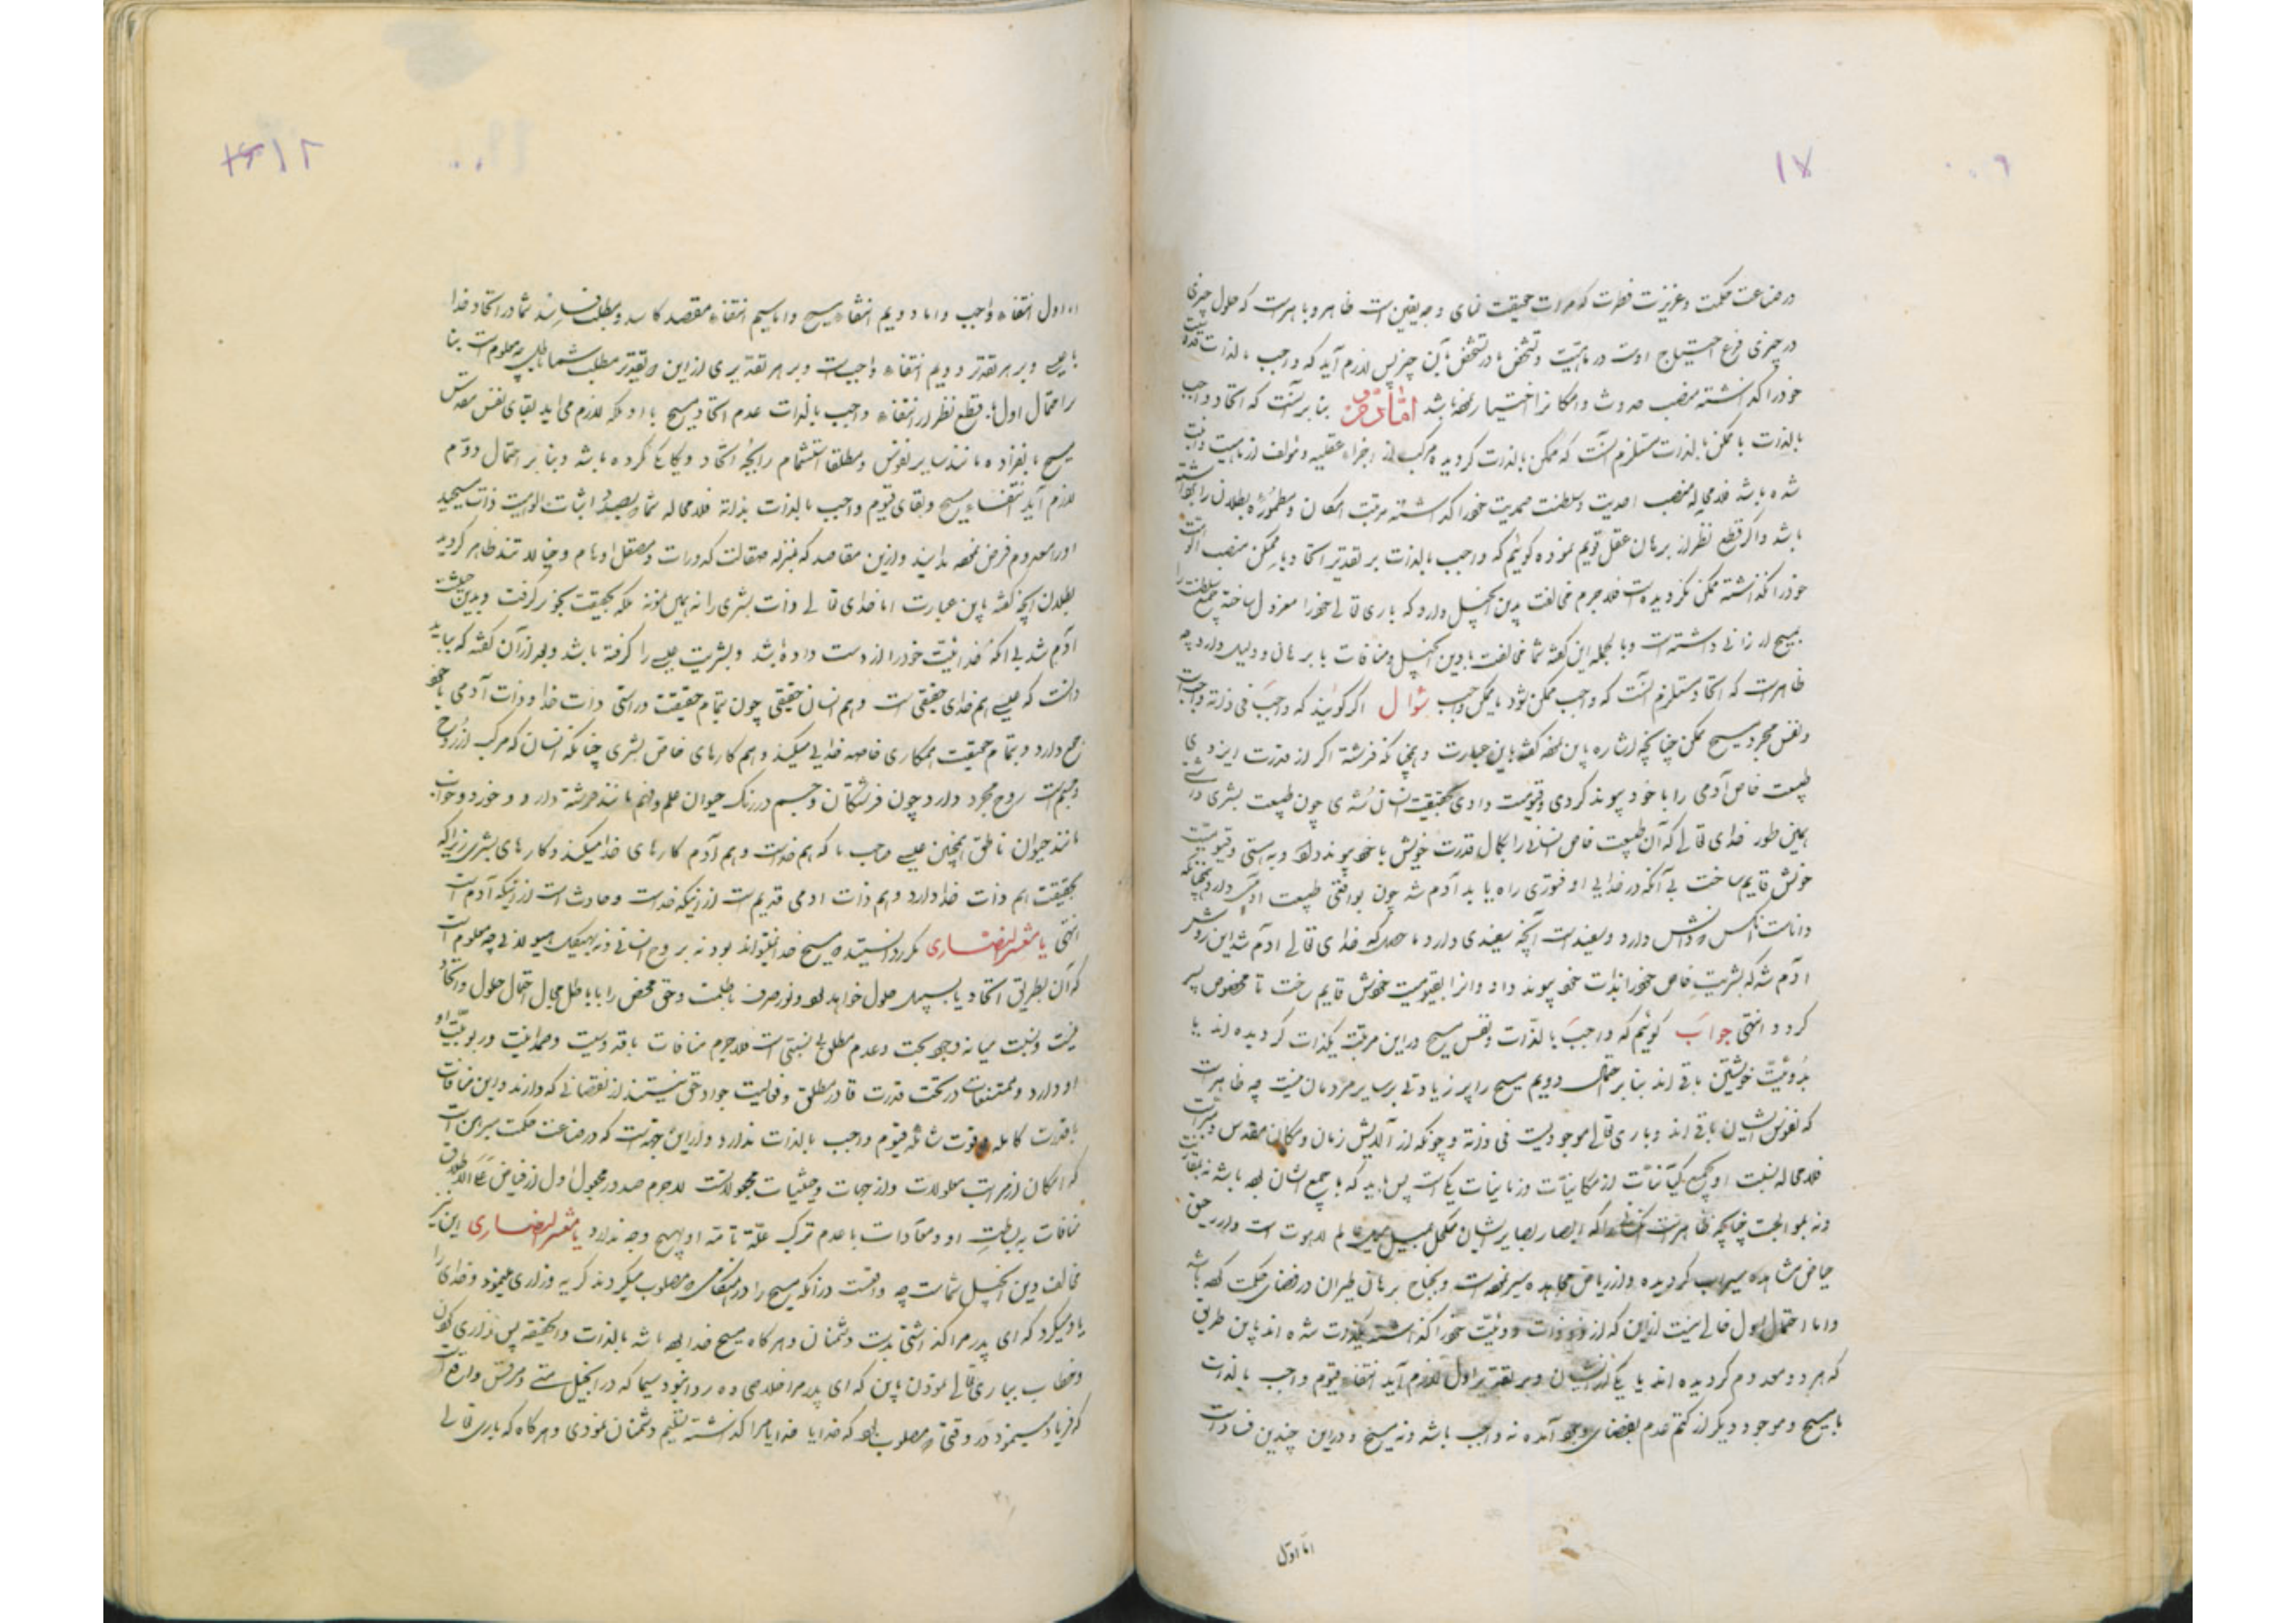 در صناعت حکمت و غریزت فطرت که مرات حقیقت نمای وجه یقین است ظاهر و باهر است که حلول چیزی
در چیزی فرع احتیاج اوست در ماهیت و تشخص یا در تشخص بآن چیز پس لازم آید که واجب بالذات
خود را گذاشته منصب حدوث و امکان را اختیار نموده باشد اما بنابر آنست که اتحاد واجب
بالذات با ممکن بالذات مستلزم آنست که ممکن بالذات گردیده مرکب از اجزاء عقلیه و مؤلف از ماهیت و انیت
شده باشد فلامحاله منصب احدیت و سلطنت صمدیت خود را گذاشته مرتبت امکان و مطموره بطلان را
باشد و اگر قطع نظر از برهان عقل قویم نموده گوئیم که واجب بالذات بر تقدیر اتحاد با ممکن منصب الوهیت
خود را گذاشته ممکن گردیده است فلاجرم مخالفت بدین انجیل دارد که باری تعالی خود را معزول ساخته
بمسیح ارزانی داشته است و بالجمله این گفته شما مخالفت با دین انجیل و منافات با برهان و دلیل دارد چه
ظاهرست که اتحاد مستلزم آنست که واجب ممکن شود یا ممکن واجب سؤال اگر گویند که واجب فی ذاته واجبست
و نفس مجرد مسیح ممکن چنانچه اشاره باین نموده گفته باین عبارت و همچنانکه فرشته اگر از قدرت ایزدی
طبیعت خاص آدمی را با خود پیوند کردی و قیومیت دادی بحقیقت انسان شدی چون طبیعت بشری داشتی
بهمین طور خدای تعالی که آن طبیعت خاص انسانرا بکمال قدرت خویش با خود پیوند داد و به هستی و قیومیت
خویش قایم ساخت بی آنکه در خدایی او فتوری راه یابد آدم شد چون بواقعی طبیعت آدمی دارد همچنانکه
داناست آنکس که دانش دارد و سفیدست آنچه سفیدی دارد ماحصل که خدای تعالی آدم شد باین روش
آدم شد که بشریت خاص خود را بذات خود پیوند داد و آنرا بقیومیت خویش قایم ساخت تا مخصوص پسر
گردد انتهی جواب گوئیم که واجب بالذات و نفس مسیح در این مرتبه یکذات گردیده اند یا
بدوئیت خویشتن باقی اند بنابر احتمال دویم مسیح را پر زیادتی بر سایر مردمان نیست چه ظاهرست
که نفوس ایشان باقی اند و باری تعالی موجودیست فی ذاته و چونکه از آلایش زمان و مکان مقدس و مبراست
فلامحاله نسبت او بجمیع کیانات از مکانیات و زمانیات یکی است پس باید که با جمیع ایشان بوده باشد
چنانچه ظاهرست آنکه ابصار بصایر ایشان مکحل عالم لاهوت است و از حق
حیاض مشاهده سیراب گردیده و از ریاض مجاهده سیر نموده است و بجناح برهان طیران در فضای حکمت کرده باشد
و اما احتمال اول خالی نیست از این که از دوئیت خود را گذاشته یکذات شده اند باین طریق
که هر دو معدوم گردیده اند یا یکی از ایشان و بر تقدیر اول لازم آید انتفاء قیوم واجب بالذات
با مسیح و موجود دیگر از کتم عدم بفضای وجود آمده نه واجب باشد و نه مسیح و در این چندین فسادات
اما اول
اما اول انتفاء واجب و اما دویم انتفاء مسیح و اما سیم انتفاء مقصد کاسد و مطلب فاسد شما در اتحاد خدا
با عیسی و بر هر تقدیر دویم انتفاء واجبست و بر هر تقدیری از این دو تقدیر مطلب شما باطل چه معلوم است بنا
بر احتمال اول با قطع نظر از انتفاء واجب بالذات عدم اتحاد مسیح با او بلکه لازم می آید بقای نفس مقدس
مسیح بانفراده مانند سایر نفوس و مطلقا استشمام رایحه اتحاد و یگانگی نکرده باشد و بنابر احتمال دوم
لازم آید انتفاء مسیح و بقای قیوم واجب بالذات بذاته فلامحاله شما که بصدد اثبات الوهیت ذات مسیحید
او را معدوم فرض نموده باشید و ازین مقاصد که بمنزله صقالت کدورات و مصقل اوهام و خیالاتند ظاهر گردید
بطلان آنچه گفته باین عبارت اما خدای تعالی ذات بشری را نه بهمین نمونه بلکه بحقیقت بخود گرفت و بدین
آدم شد بی آنکه خدائیت خود را از دست داده باشد و بشریت عیسی را گرفته باشد و بعد از آن گفته که باید
دانست که عیسی هم خدای حقیقی است و هم انسان حقیقی چون بتمام حقیقت و راستی ذات خدا و ذات آدمی با خود
جمع دارد و بتمام حقیقت همکاری خاصه خدایی میکند و هم کارهای خاص بشری چنانکه انسان که مرکب از روح
و جسم است روح مجرد دارد چون فرشتگان و جسم در رنگ حیوان علم و فهم مانند فرشته دارد و خورد و خواب
مانند حیوان ناطق همچنین عیسی صاحب ما که هم خداست و هم آدم کارهای خدا میکند و کارهای بشری زیراکه
بحقیقت هم ذات خدا دارد و هم ذات آدمی قدیم است از اینکه خداست و حادث است از اینکه آدم است
انتهی یا معشر النصاری مگر ندانسته اید که مسیح خدا نمیتواند بود نه بروح انسانی و نه بهیکل هیولانی چه معلوم است
که آن بطریق اتحاد یا بسبیل حلول خواهد بود و نور صرف با ظلمت و حق محض را با باطل مجال احتمال حلول و اتحاد
نیست و نسبت میانه وجود بحت و عدم مطلق بی نسبتی است فلاجرم منافات با قدوسیت و صمدانیت و ربوبیت او
او دارد و ممتنعات در تحت قدرت قادر مطلق و فعالیت جواد حق نیستند از نقصانی که دارند و این منافات
با قدرت کامله و قوت شامله قیوم واجب بالذات ندارد و از این جهتست که در صناعت حکمت مبرهن است
که امکان از مراتب معلولات و از جهات و حیثیات مجعولاتست لاجرم صدور مجعول اول از فیاض علی الاطلاق
منافات به بساطت او و محاذات با عدم ترکب علة تامه او بهیچ وجه ندارد یا معشر النصاری این نیز
مخالف دین انجیل شماست چه واقعست در آنکه مسیح را در هنگامی که مصلوب میکردند گریه و زاری مینمود و خدای را
یاد میکرد که ای پدر مرا گذاشتی بدست دشمنان و هرگاه مسیح خدا بوده باشد بالذات و الحقیقه پس زاری کردن
و خطاب بباری تعالی نمودن باین که ای پدر مرا خلاصی ده روا نبود سیما که در انجیل متی و مرقس وارد است
که فریاد مینمود در وقتی که مصلوب بود که خدایا خدایا مرا گذاشته تسلیم دشمنان نمودی و هرگاه که باری تعالی